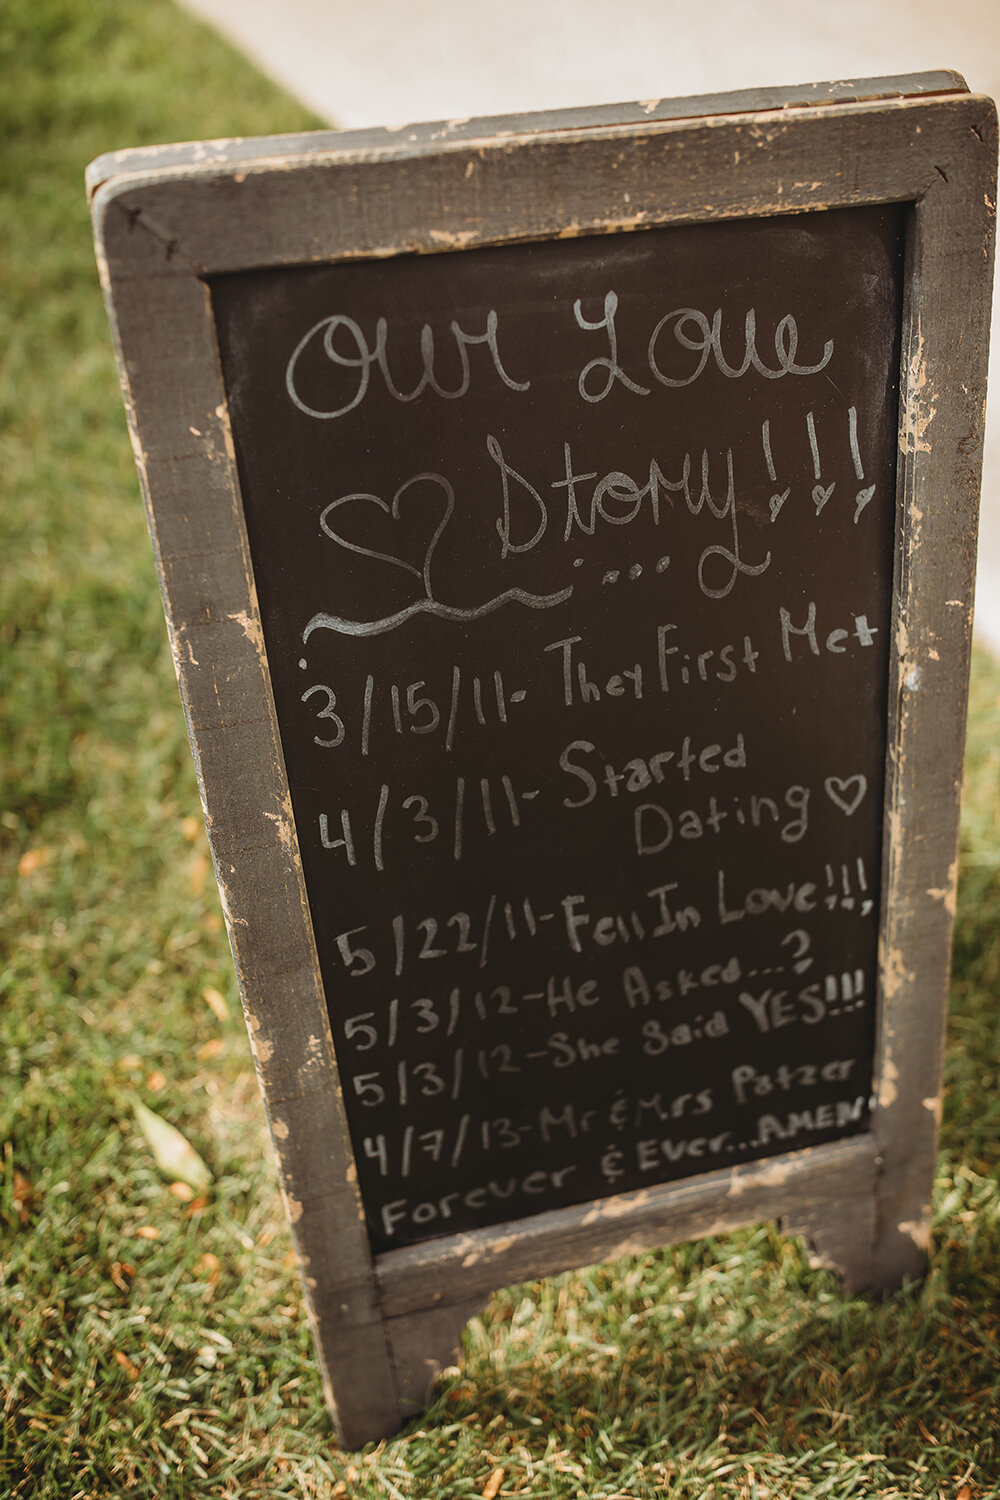 Our Love
Story!!!
3/15/11- They First Met
4/3/11- Started
Dating
5/22/11- Fell In Love!!!
5/3/12-He Asked...?
5/3/12-She Said YES!!!
4/7/13-Mr & Mrs Patzer
Forever & Ever...AMEN